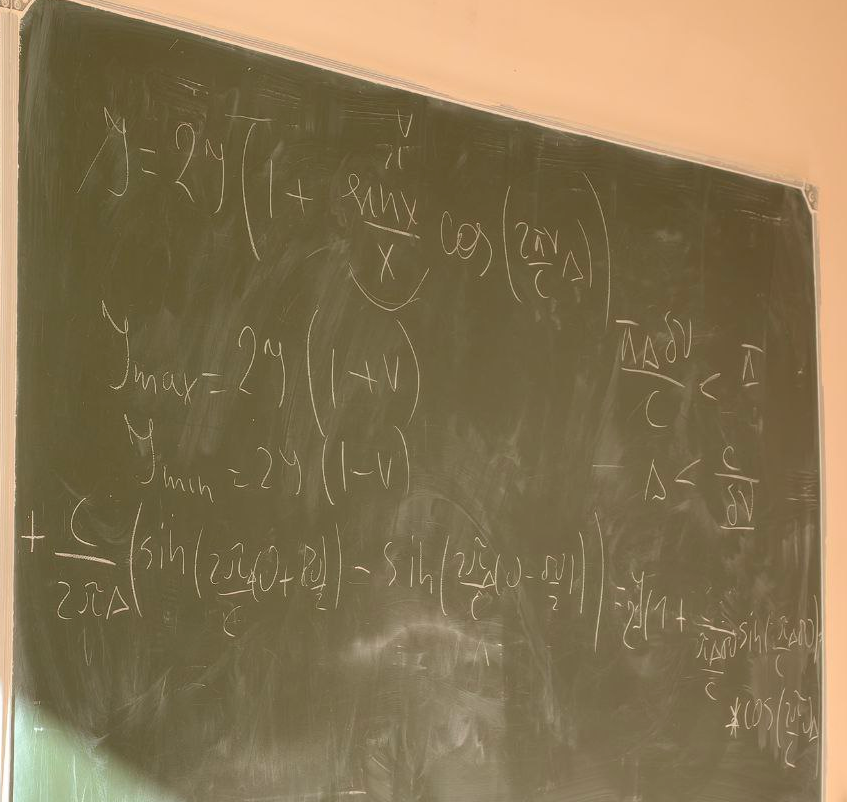 V
π
y = 2y (1 + sinx/x cos(2πν/c Δ))
y_max = 2y (1+V)
y_min = 2y (1-V)
πΔδν/c < π
Δ < c/δν
+ c/2πΔ (sin(2πΔ/c(υ+δυ/2)) - sin(2πΔ/c(υ-δυ/2))) = 2y(1+ 1/(πΔδυ/c) sin(πΔδυ/c)
*cos(2πυΔ/c